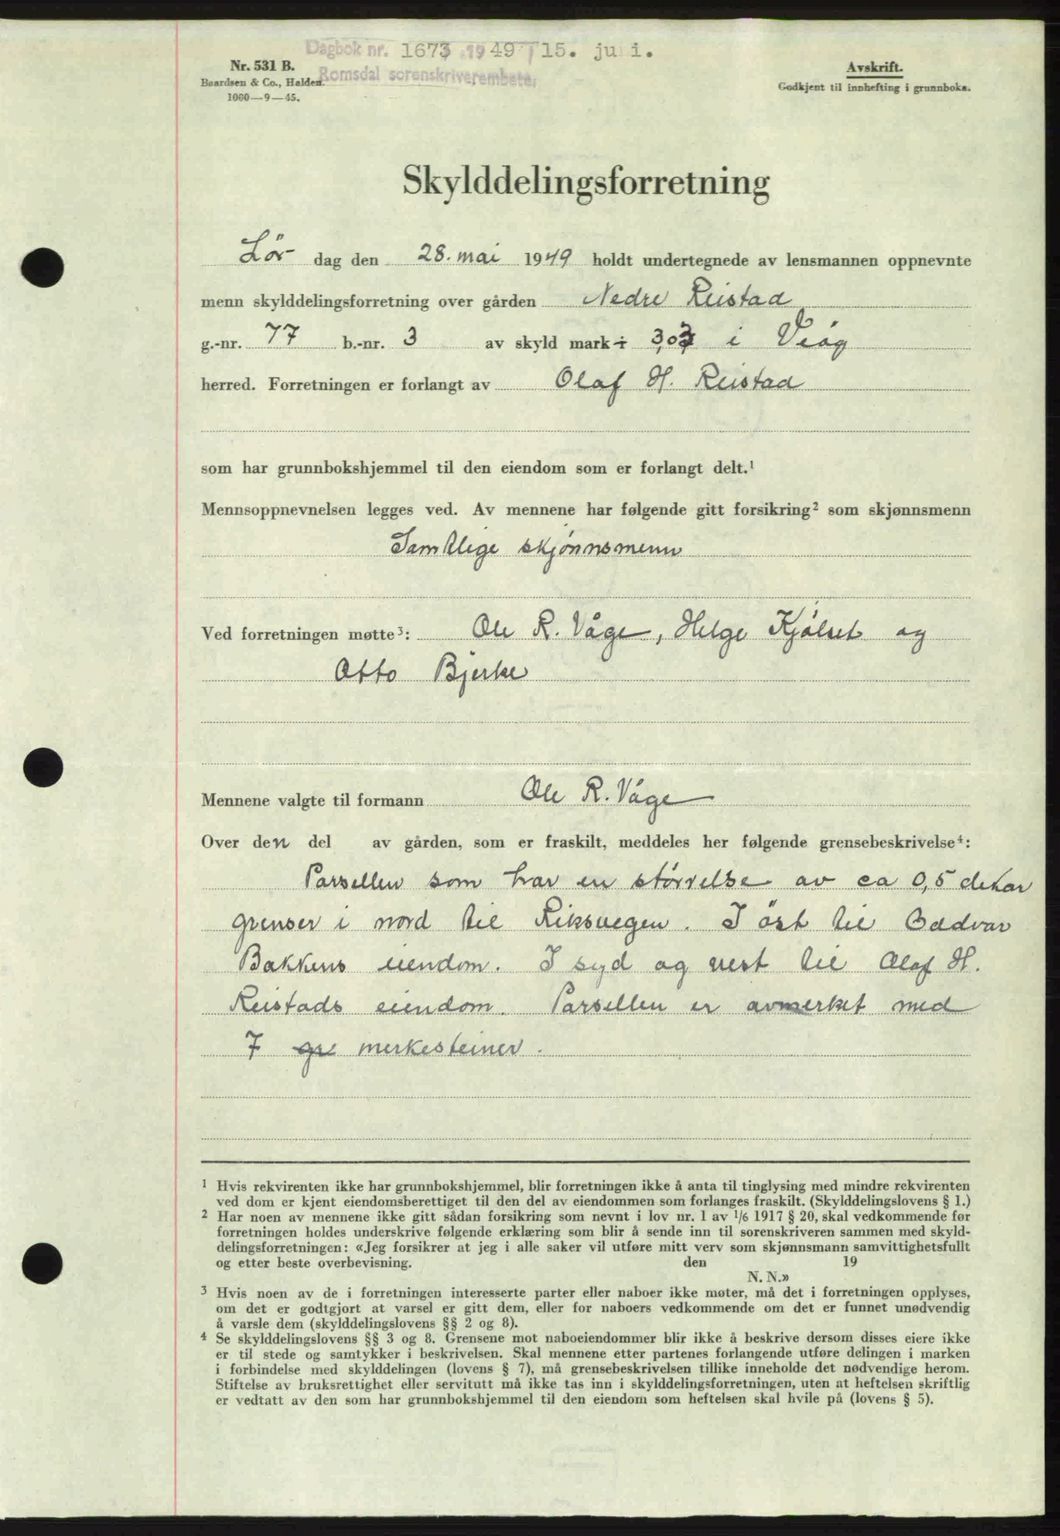 Dagbok nr. 1673 1949 15. juni.
Romsdal sorenskriverembete.
Nr. 531 B.
Baardsen & Co., Halden.
1000—9—45.
Avskrift.
Godkjent til innhefting i grunnboka.
Skylddelingsforretning
Lør- dag den 28. mai 1949 holdt undertegnede av lensmannen oppnevnte
menn skylddelingsforretning over gården Nedre Reistad
g.-nr. 77 b.-nr. 3 av skyld mark 3,03 i Veøy
herred. Forretningen er forlangt av Olaf H. Reistad
som har grunnbokshjemmel til den eiendom som er forlangt delt.¹
Mennsoppnevnelsen legges ved. Av mennene har følgende gitt forsikring² som skjønnsmenn
Samtlige skjønnsmenn
Ved forretningen møtte³: Ole R. Våge, Helge Kjølset og
Otto Bjerke
Mennene valgte til formann Ole R. Våge
Over den del av gården, som er fraskilt, meddeles her følgende grensebeskrivelse⁴:
Parsellen som har en størrelse av ca 0,5 dekar
grenser i nord til Riksvegen. I øst til Oddvar
Bakkens eiendom. I syd og vest til Olaf H.
Reistads eiendom. Parsellen er avmerket med
7 gr merkesteiner.
¹ Hvis rekvirenten ikke har grunnbokshjemmel, blir forretningen ikke å anta til tinglysing med mindre rekvirenten
ved dom er kjent eiendomsberettiget til den del av eiendommen som forlanges fraskilt. (Skylddelingslovens § 1.)
² Har noen av mennene ikke gitt sådan forsikring som nevnt i lov nr. 1 av 1/6 1917 § 20, skal vedkommende før
forretningen holdes underskrive følgende erklæring som blir å sende inn til sorenskriveren sammen med skyld-
delingsforretningen: «Jeg forsikrer at jeg i alle saker vil utføre mitt verv som skjønnsmann samvittighetsfullt
og etter beste overbevisning. den 19
N. N.»
³ Hvis noen av de i forretningen interesserte parter eller naboer ikke møter, må det i forretningen opplyses,
om det er godtgjort at varsel er gitt dem, eller for naboers vedkommende om det er funnet unødvendig
å varsle dem (skylddelingslovens §§ 2 og 8).
⁴ Se skylddelingslovens §§ 3 og 8. Grensene mot naboeiendommer blir ikke å beskrive dersom disses eiere ikke
er til stede og samtykker i beskrivelsen. Skal mennene etter partenes forlangende utføre delingen i marken
i forbindelse med skylddelingen (lovens § 7), må grensebeskrivelsen tillike inneholde det nødvendige herom.
Stiftelse av bruksrettighet eller servitutt må ikke tas inn i skylddelingsforretningen, uten at heftelsen skriftlig
er vedtatt av den som har grunnbokshjemmel til den eiendom som heftelsen skal hvile på (lovens § 5).